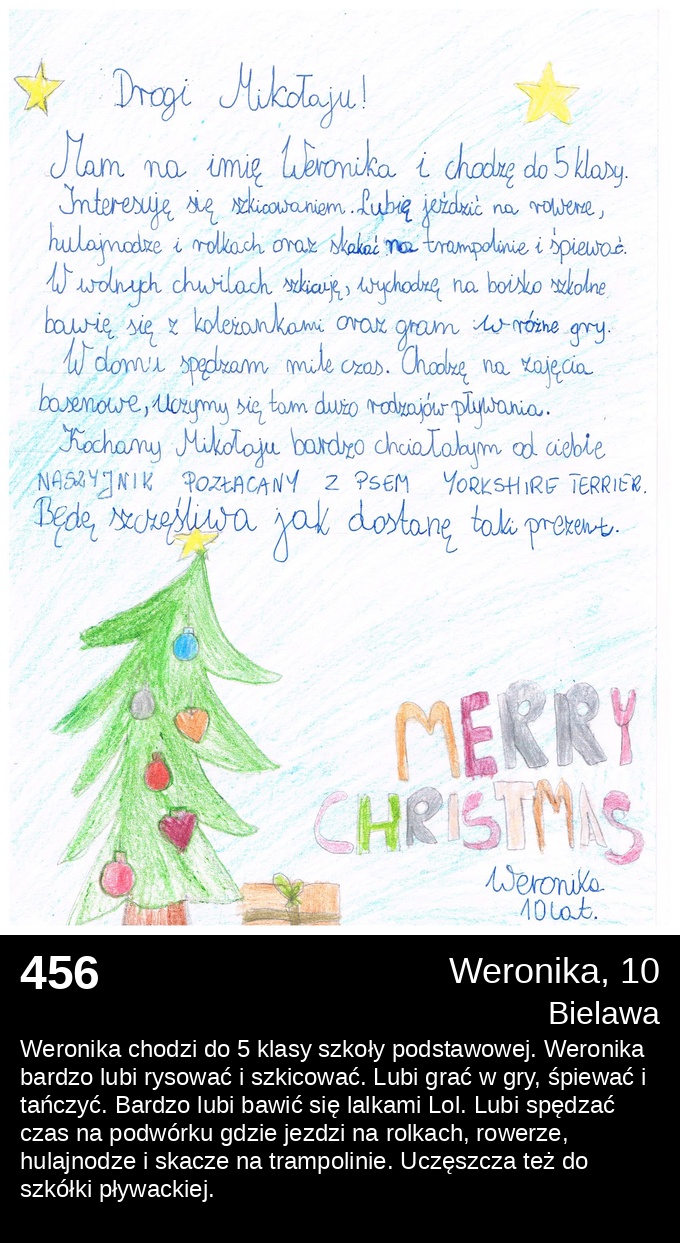 Drogi Mikołaju!
Mam na imię Weronika i chodzę do 5 klasy.
Interesuję się szkicowaniem. Lubię jeździć na rowerze,
hulajnodze i rolkach oraz skakać na trampolinie i śpiewać.
W wolnych chwilach szkicuję, wychodzę na boisko szkolne
bawię się z koleżankami oraz gram w różne gry.
W domu spędzam miłe czas. Chodzę na zajęcia
basenowe, uczymy się tam dużo rodzajów pływania.
Kochany Mikołaju bardzo chciałabym od ciebie
NASZYJNIK POZŁACANY Z PSEM YORKSHIRE TERRIER.
Będę szczęśliwa jak dostanę taki prezent.
MERRY
CHRISTMAS
Weronika
10 lat.
456
Weronika, 10
Bielawa
Weronika chodzi do 5 klasy szkoły podstawowej. Weronika
bardzo lubi rysować i szkicować. Lubi grać w gry, śpiewać i
tańczyć. Bardzo lubi bawić się lalkami Lol. Lubi spędzać
czas na podwórku gdzie jezdzi na rolkach, rowerze,
hulajnodze i skacze na trampolinie. Uczęszcza też do
szkółki pływackiej.